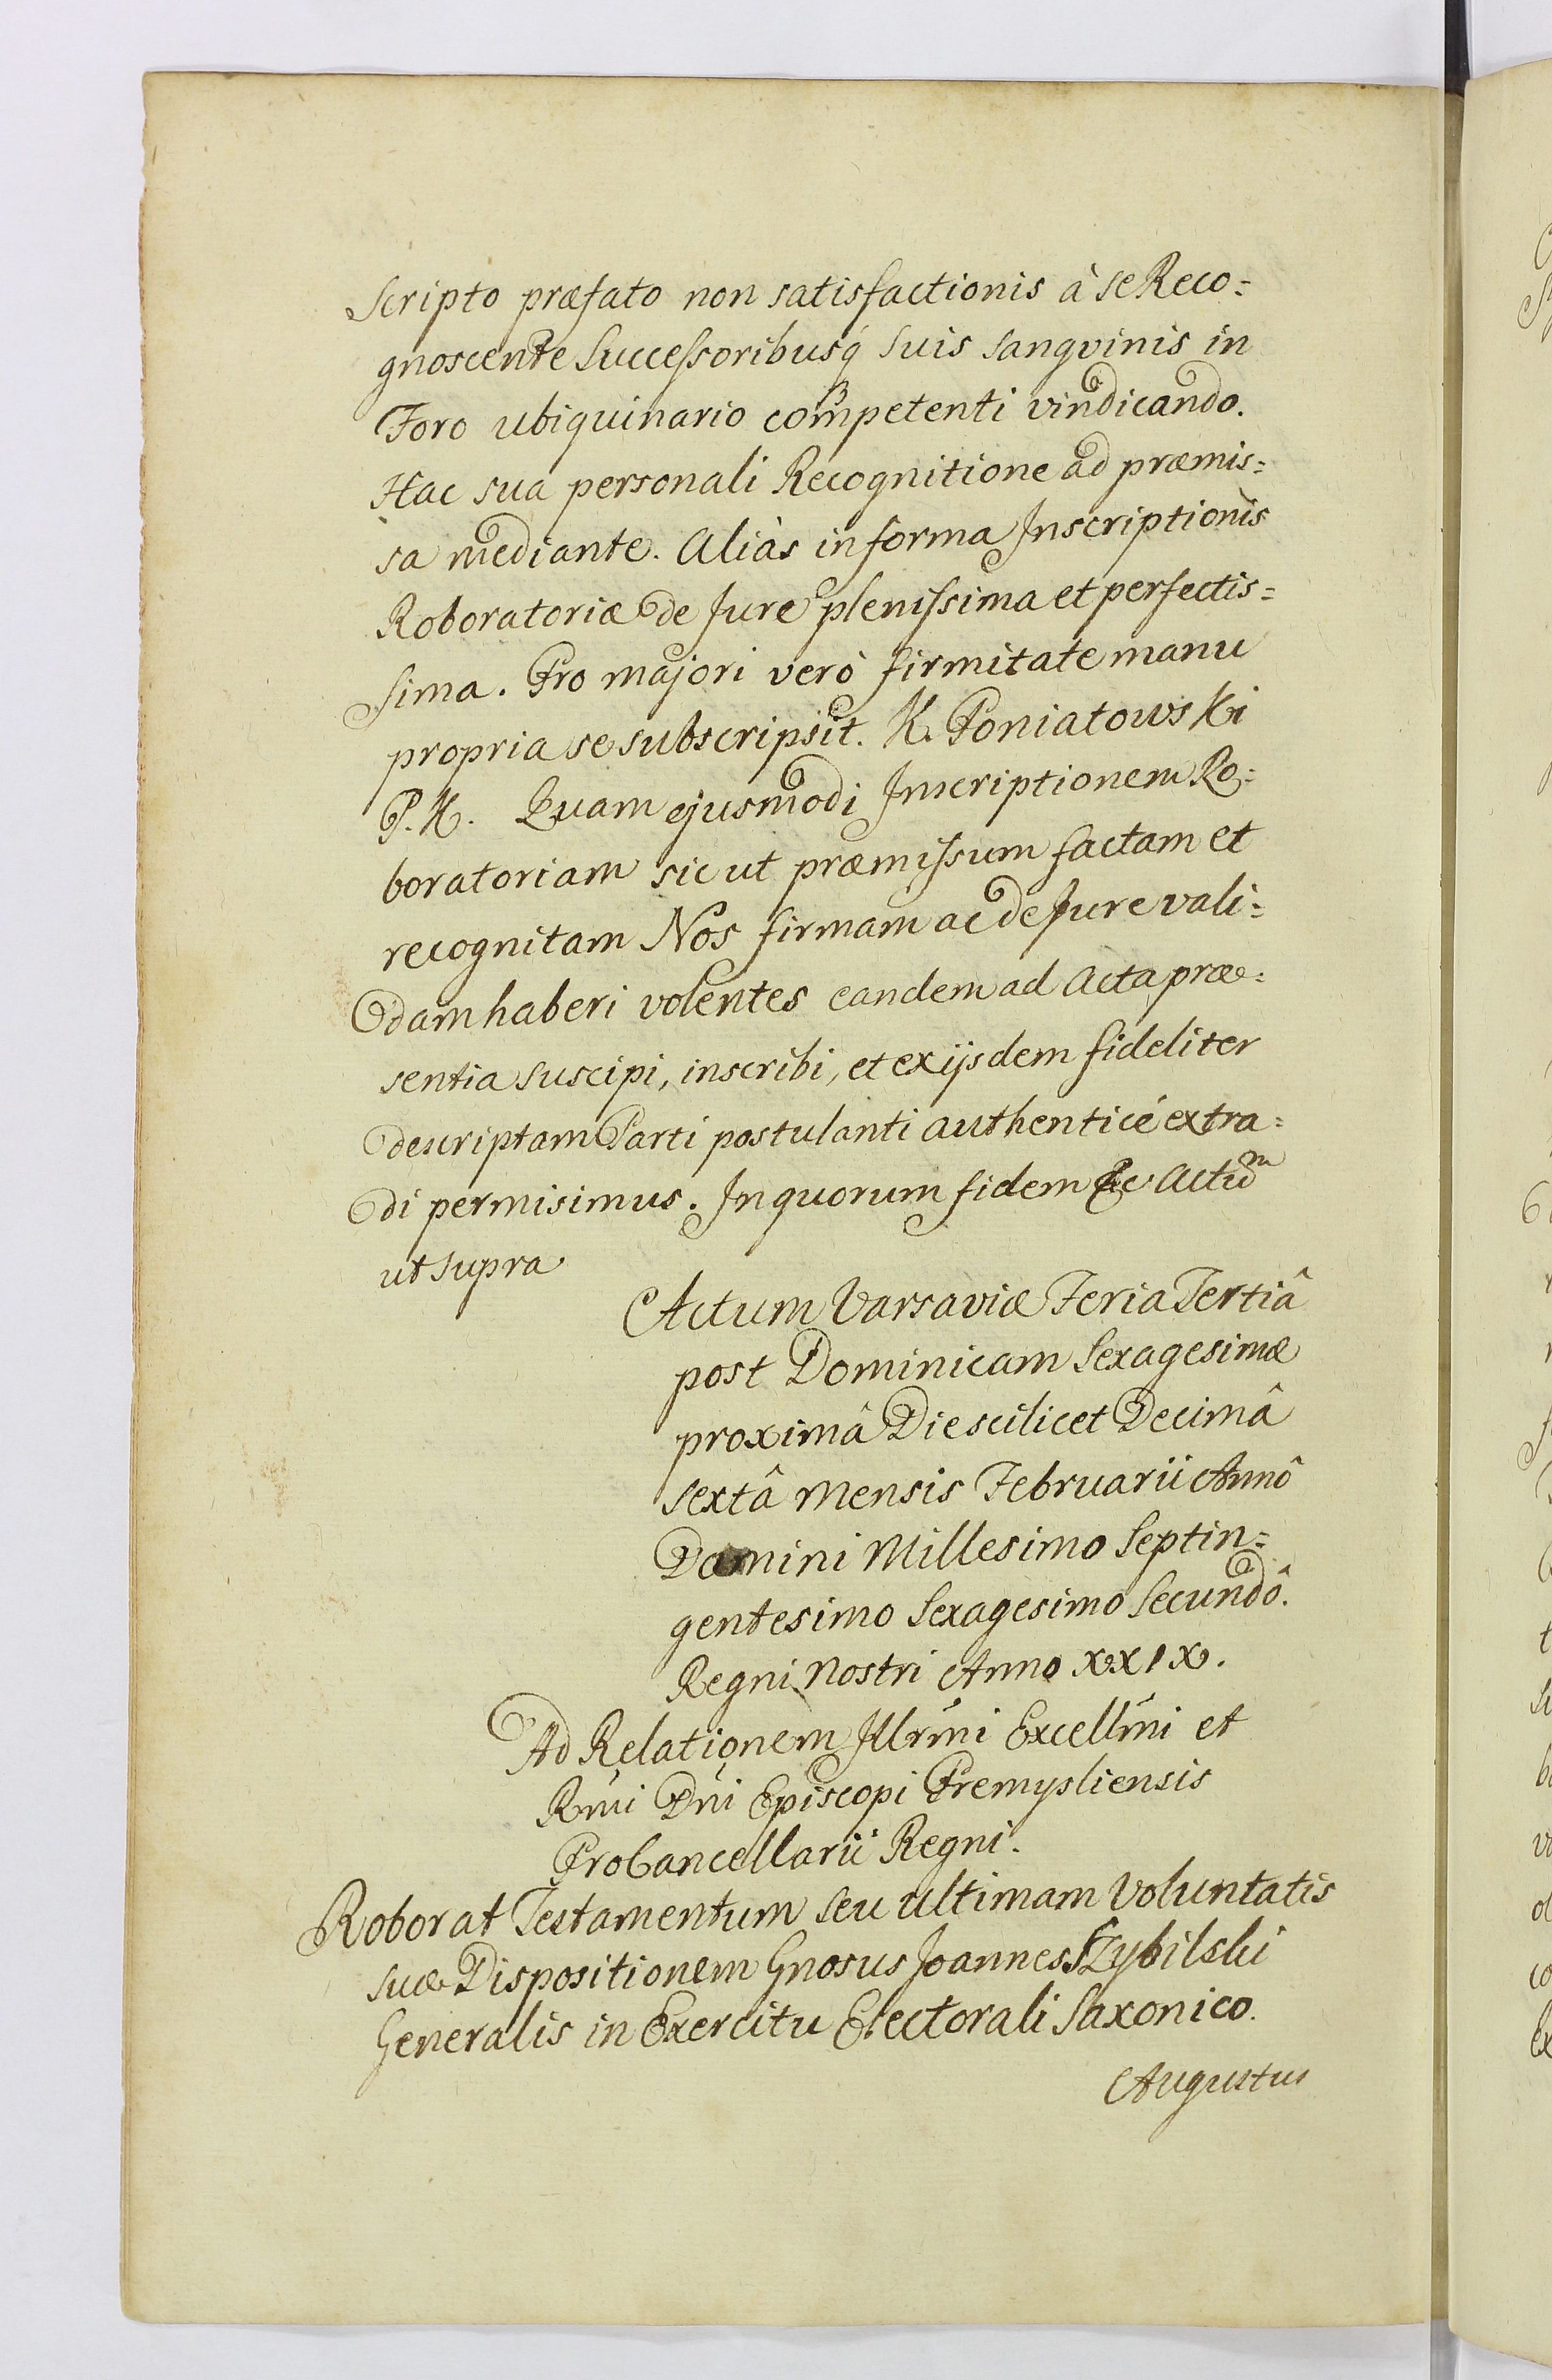 Scripto præfato non satisfactionis à se Reco=
gnoscente Successoribusq́ suis sangvinis in
Foro ubiquinario competenti vindicando.
Hac sua personali Recognitione ad præmis=
sa mediante. Aliàs in forma Inscriptionis
Roboratoriæ de Jure plenissima et perfectis=
sima. Pro majori verò firmitate manu
propria se subscripsit. K. Poniatowski
P. K. Quam ejusmodi Inscriptionem Ro=
boratoriam sic ut præmissum factam et
recognitam Nos firmam ac de Jure vali=
dam haberi volentes eandem ad Acta præ=
sentia suscipi, inscribi, et ex ijsdem fideliter
descriptam Parti postulanti authenticé extra=
di permisimus. In quorum fidem &c Actu͠m
ut supra
Actum Varsaviæ Feria Tertiâ
post Dominicam Sexagesimæ
proximâ Die scilicet Decimâ
sextâ Mensis Februarii Annô
Domini Millesimo Septin=
gentesimo Sexagesimo Secundô.
Regni Nostri Anno XXIX.
Ad Relationem Illrm̃i Excellm̃i et
Rm̃i Dñi Episcopi Premysliensis
ProCancellarii Regni.
Roborat Testamentum seu ultimam Voluntatis
suæ Dispositionem Gnosus Joannes SZybilski
Generalis in Exercitu Electorali Saxonico.
Augustus